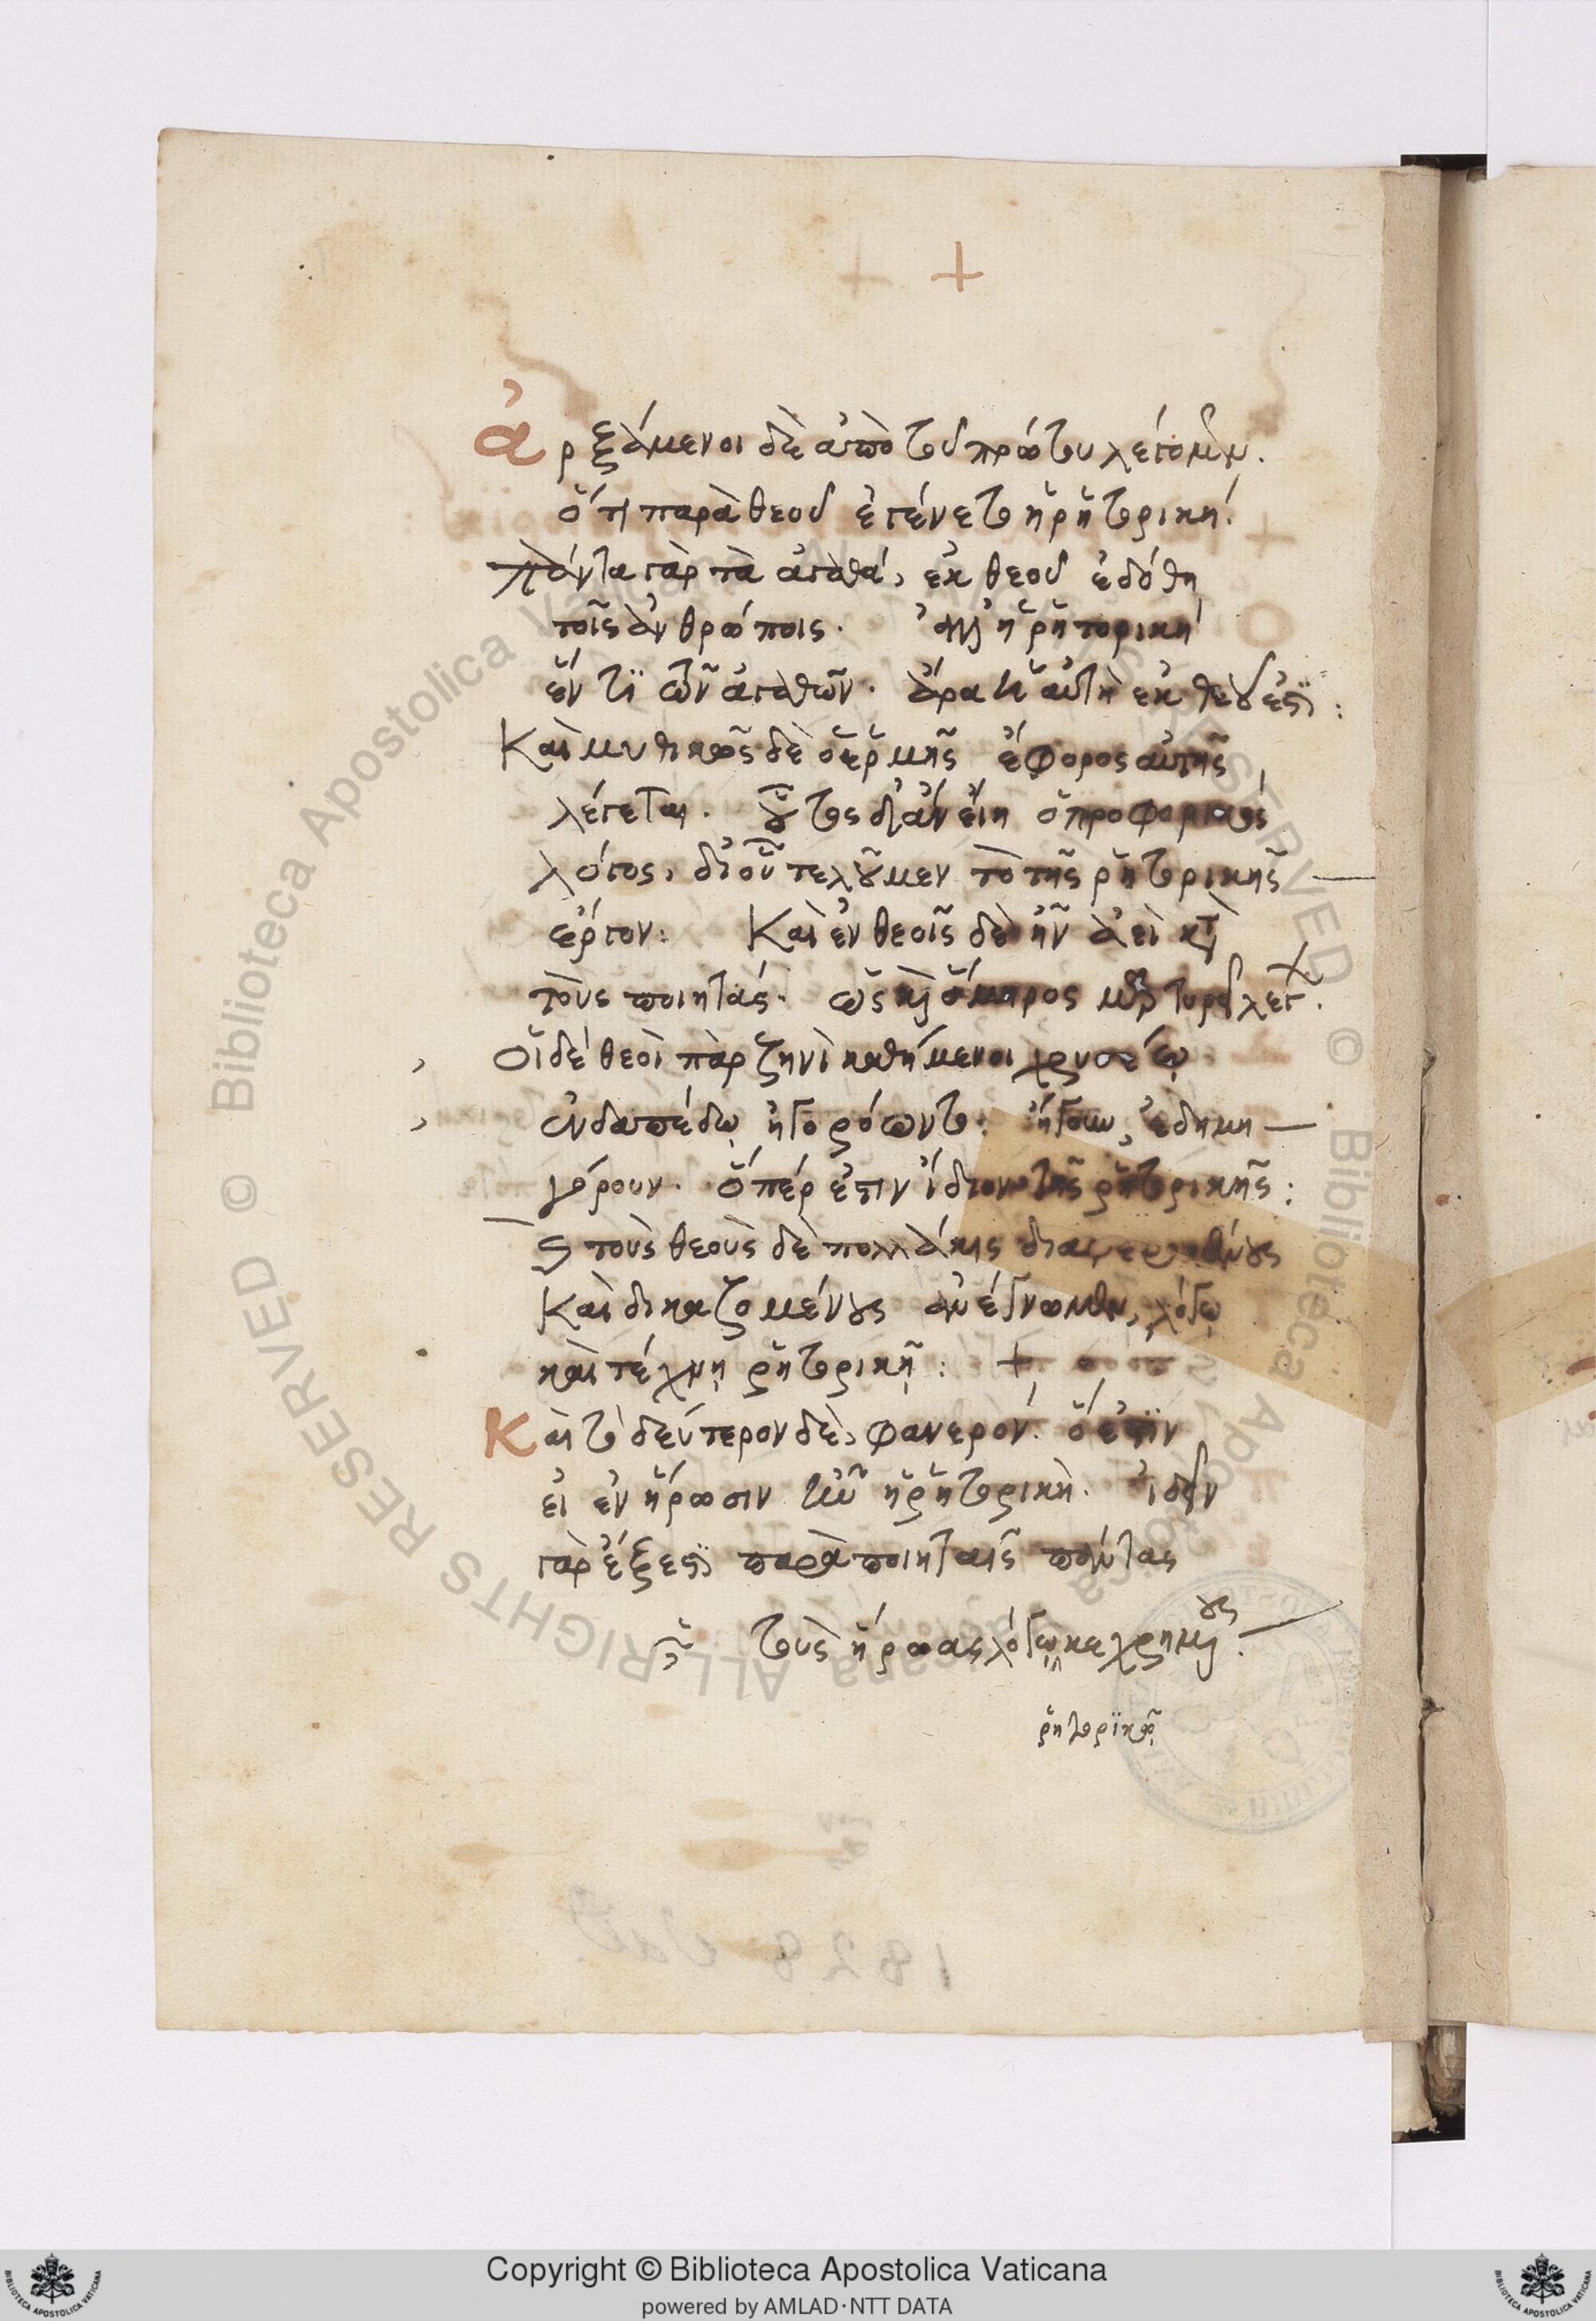 +
ἀρξάμενοι δὲ ἀπὸ τοῦ πρώτου λέγομεν.
ὅτι παρὰ θεοῦ ἐγένετο ἡ ῥητορική.
πάντα γὰρ τὰ ἀγαθά, ἐκ θεοῦ ἐδόθη
τοῖς ἀνθρώποις. ἀλλ' ἡ ῥητορική
ἕν τι τῶν ἀγαθῶν. ἄρα καὶ αὐτὴ ἐκ θεοῦ ἐστι:
Καὶ μυθικῶς δὲ ὁ ἑρμῆς ἔφορος αὐτῆς
λέγεται. οὗτος δ' ἂν εἴη ὁ προφορικὸς
λόγος, δι' οὗ τελοῦμεν τὸ τῆς ῥητορικῆς
ἔργον: Καὶ ἐν θεοῖς δὲ ἦν ἀεὶ κατὰ
τοὺς ποιητάς. ὡς καὶ ὅμηρος λέγ.
οἱ δὲ θεοὶ πὰρ ζηνὶ καθήμενοι χρυσέῳ
ἐν δαπέδῳ ἠγορόωντο: ἤγουν, ἐδημη
γόρουν. ὅπερ ἐστιν ἴδιον τῆς ῥητορικῆς:
τοὺς θεοὺς δὲ πολλάκις
Καὶ δικαζομένους ἀνέγνωμεν, λόγῳ
καὶ τέχνῃ ῥητορικῇ: +
Καὶ τὸ δεύτερον δὲ, φανερόν. ὅ ἐστιν
εἰ ἐν ἥρωσιν ἦν ἡ ῥητορική. ἰδεῖν
γὰρ ἔξεστι παρὰ ποιηταῖς πάντας
τοὺς ἥρωας λόγῳ κεχρημένους.
ῥητορικῷ
Copyright © Biblioteca Apostolica Vaticana
powered by AMLAD·NTT DATA